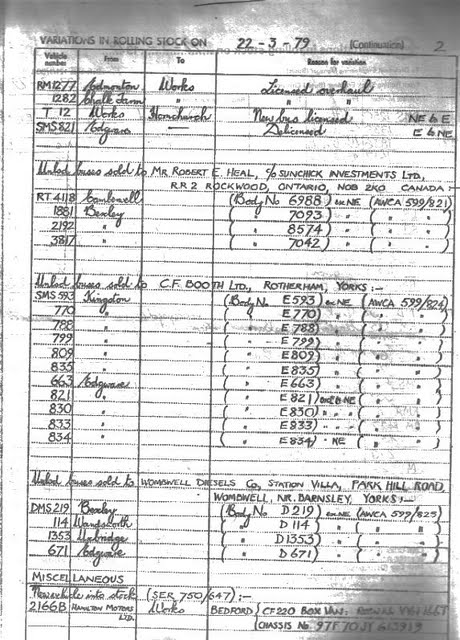 VARIATIONS IN ROLLING STOCK ON 22-3-79 (Continuation) 2
Vehicle number From To Reason for variation
RM1277 Edmonton Works Licensed overhaul
1282 Chalk Farm " " "
T 12 Works Hornchurch New bus licensed NE to E
SMS821 Edgware — Delicensed E to NE
Unlicd buses sold to MR ROBERT E. HEAL, c/o SUNCHICK INVESTMENTS LTD,
R.R.2 ROCKWOOD, ONTARIO, NOB 2KO CANADA:-
RT4118 Camberwell (Body No 6988) ex NE (AWCA 599/821)
1881 Bexley ( " 7093) " ( " " )
2192 " ( " 8574) " ( " " )
3817 " ( " 7042) " ( " " )
Unlicd buses sold to C.F. BOOTH LTD., ROTHERHAM, YORKS:-
SMS593 Kingston (Body No E593) ex NE (AWCA 599/824)
770 " ( " E770) " ( " " )
788 " ( " E788) " ( " " )
799 " ( " E799) " ( " " )
809 " ( " E809) " ( " " )
835 " ( " E835) " ( " " )
663 Edgware ( " E663) " ( " " )
821 " ( " E821) ex E to NE ( " " )
830 " ( " E830) " " " ( " " )
833 " ( " E833) " " " ( " " )
834 " ( " E834) " NE ( " " )
Unlicd buses sold to WOMBWELL DIESELS Co, STATION VILLA, PARK HILL ROAD,
WOMBWELL, NR. BARNSLEY, YORKS:-
DMS219 Bexley (Body No D219) ex NE (AWCA 599/825)
114 Wandsworth ( " D114) " ( " " )
1353 Uxbridge ( " D1353) " ( " " )
671 Edgware ( " D671) " ( " " )
MISCELLANEOUS
New vehicle into stock (SER 750/647):-
2166B HAMILTON MOTORS LTD. Works BEDFORD CF220 BOX VAN.
CHASSIS No. 97F70JY